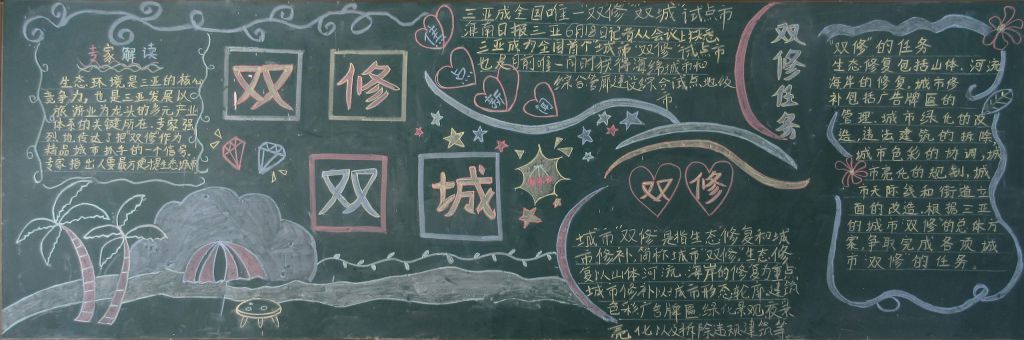 专家解读
生态环境是三亚的核心
竞争力，也是三亚发展以
旅游业为龙头的多元产业
体系的关键所在。专家强
列地传达了把双修作为
精品城市抓手的一个信号，
专家指出从要最方便接生态城市
双修
双城
读
点
新
闻
三亚成全国唯一"双修""双城"试点市
海南日报三亚6月
三亚成为全国首个城市"双修"试点市
也是目前唯一同时获得海绵城市和
综合管廊建设综合试点地级
市
双修任务
双修
城市"双修"是指生态修复和城
市修补，简称城市"双修"，生态修
复以山体河流，海岸的修复为重点
城市修补以城市形态轮廓建筑
色彩广告牌匾绿化景观夜景
亮化以及拆除违规建筑等
"双修"的任务
生态修复包括山体，河流
海岸的修复，城市修
补包括广告牌匾的一
管理，城市绿化的改
造，违法建筑的拆除
城市色彩的协调，城
市亮化的规划，城
市天际线和街道立
面的改造，根据三亚
的城市双修的总体方
案，争取完成各项城
市"双修"的任务。